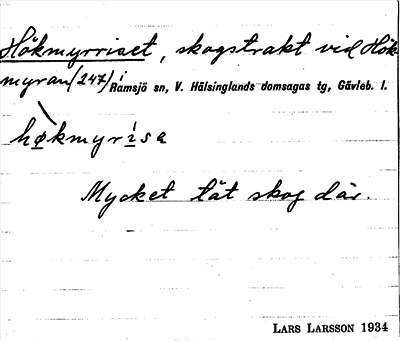 Hökmyrriset, skogstrakt vid Hök
myran (247) i Ramsjö sn, V. Hälsinglands domsagas tg, Gävleb. l.
høkmyrisa
Mycket tät skog där.
LARS LARSSON 1934